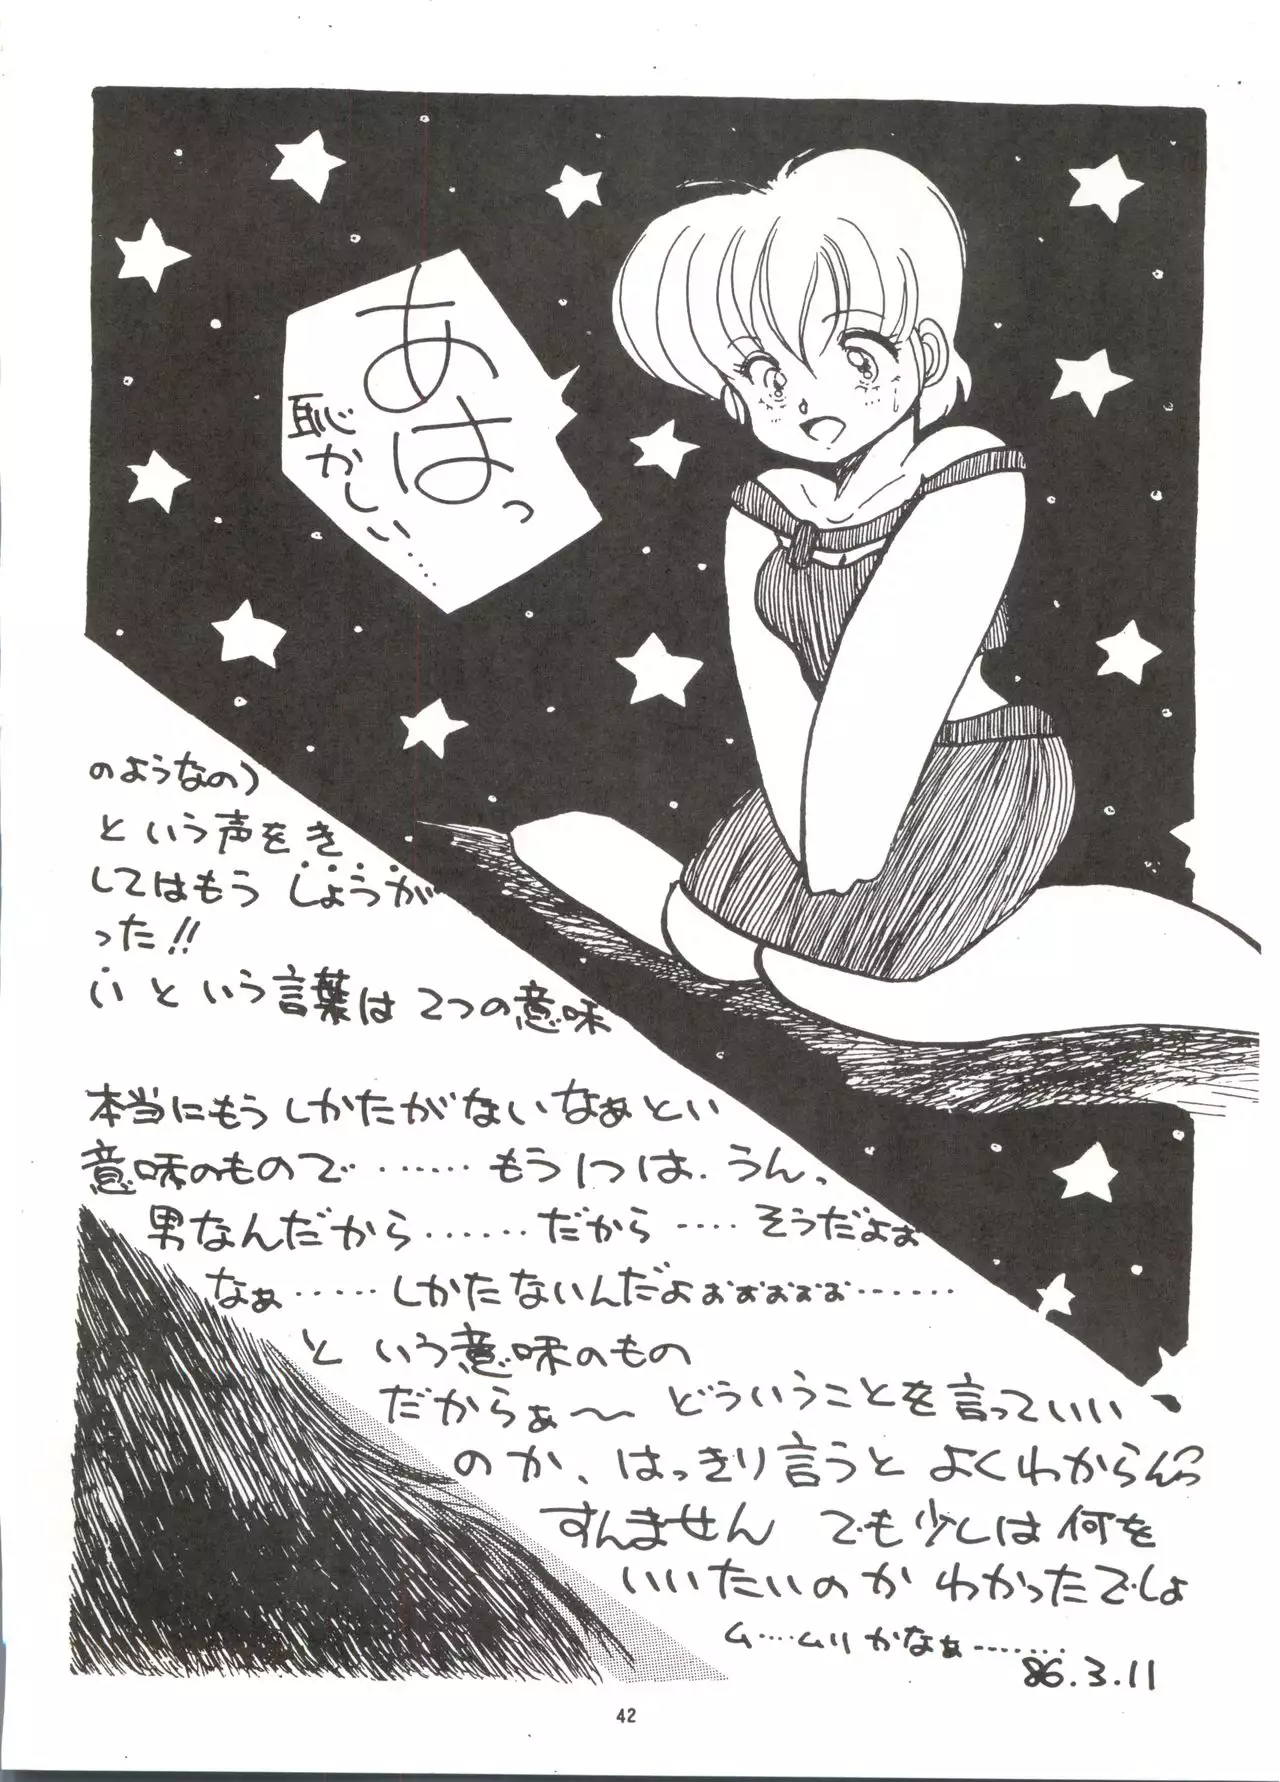 あはっ
恥かしい……
のようなの)
という声をき
してはもう しょうが
った!!
い という言葉は 2つの意味
本当にもう しかたがないなぁとい
意味のもので ……… もう1つは、うん、
男なんだから……… だから ‥‥ そうだよぉ
なぁ……しかたないんだよぉぉぉぉぉ………
という意味のもの
だからぁ〜 どういうことを言っていい
のか、はっきり言うと よくわからんっ
すんません でも少しは何を
いいたいのか わかったでしょ
ム‥‥ムリかなぁ………
86.3.11
42